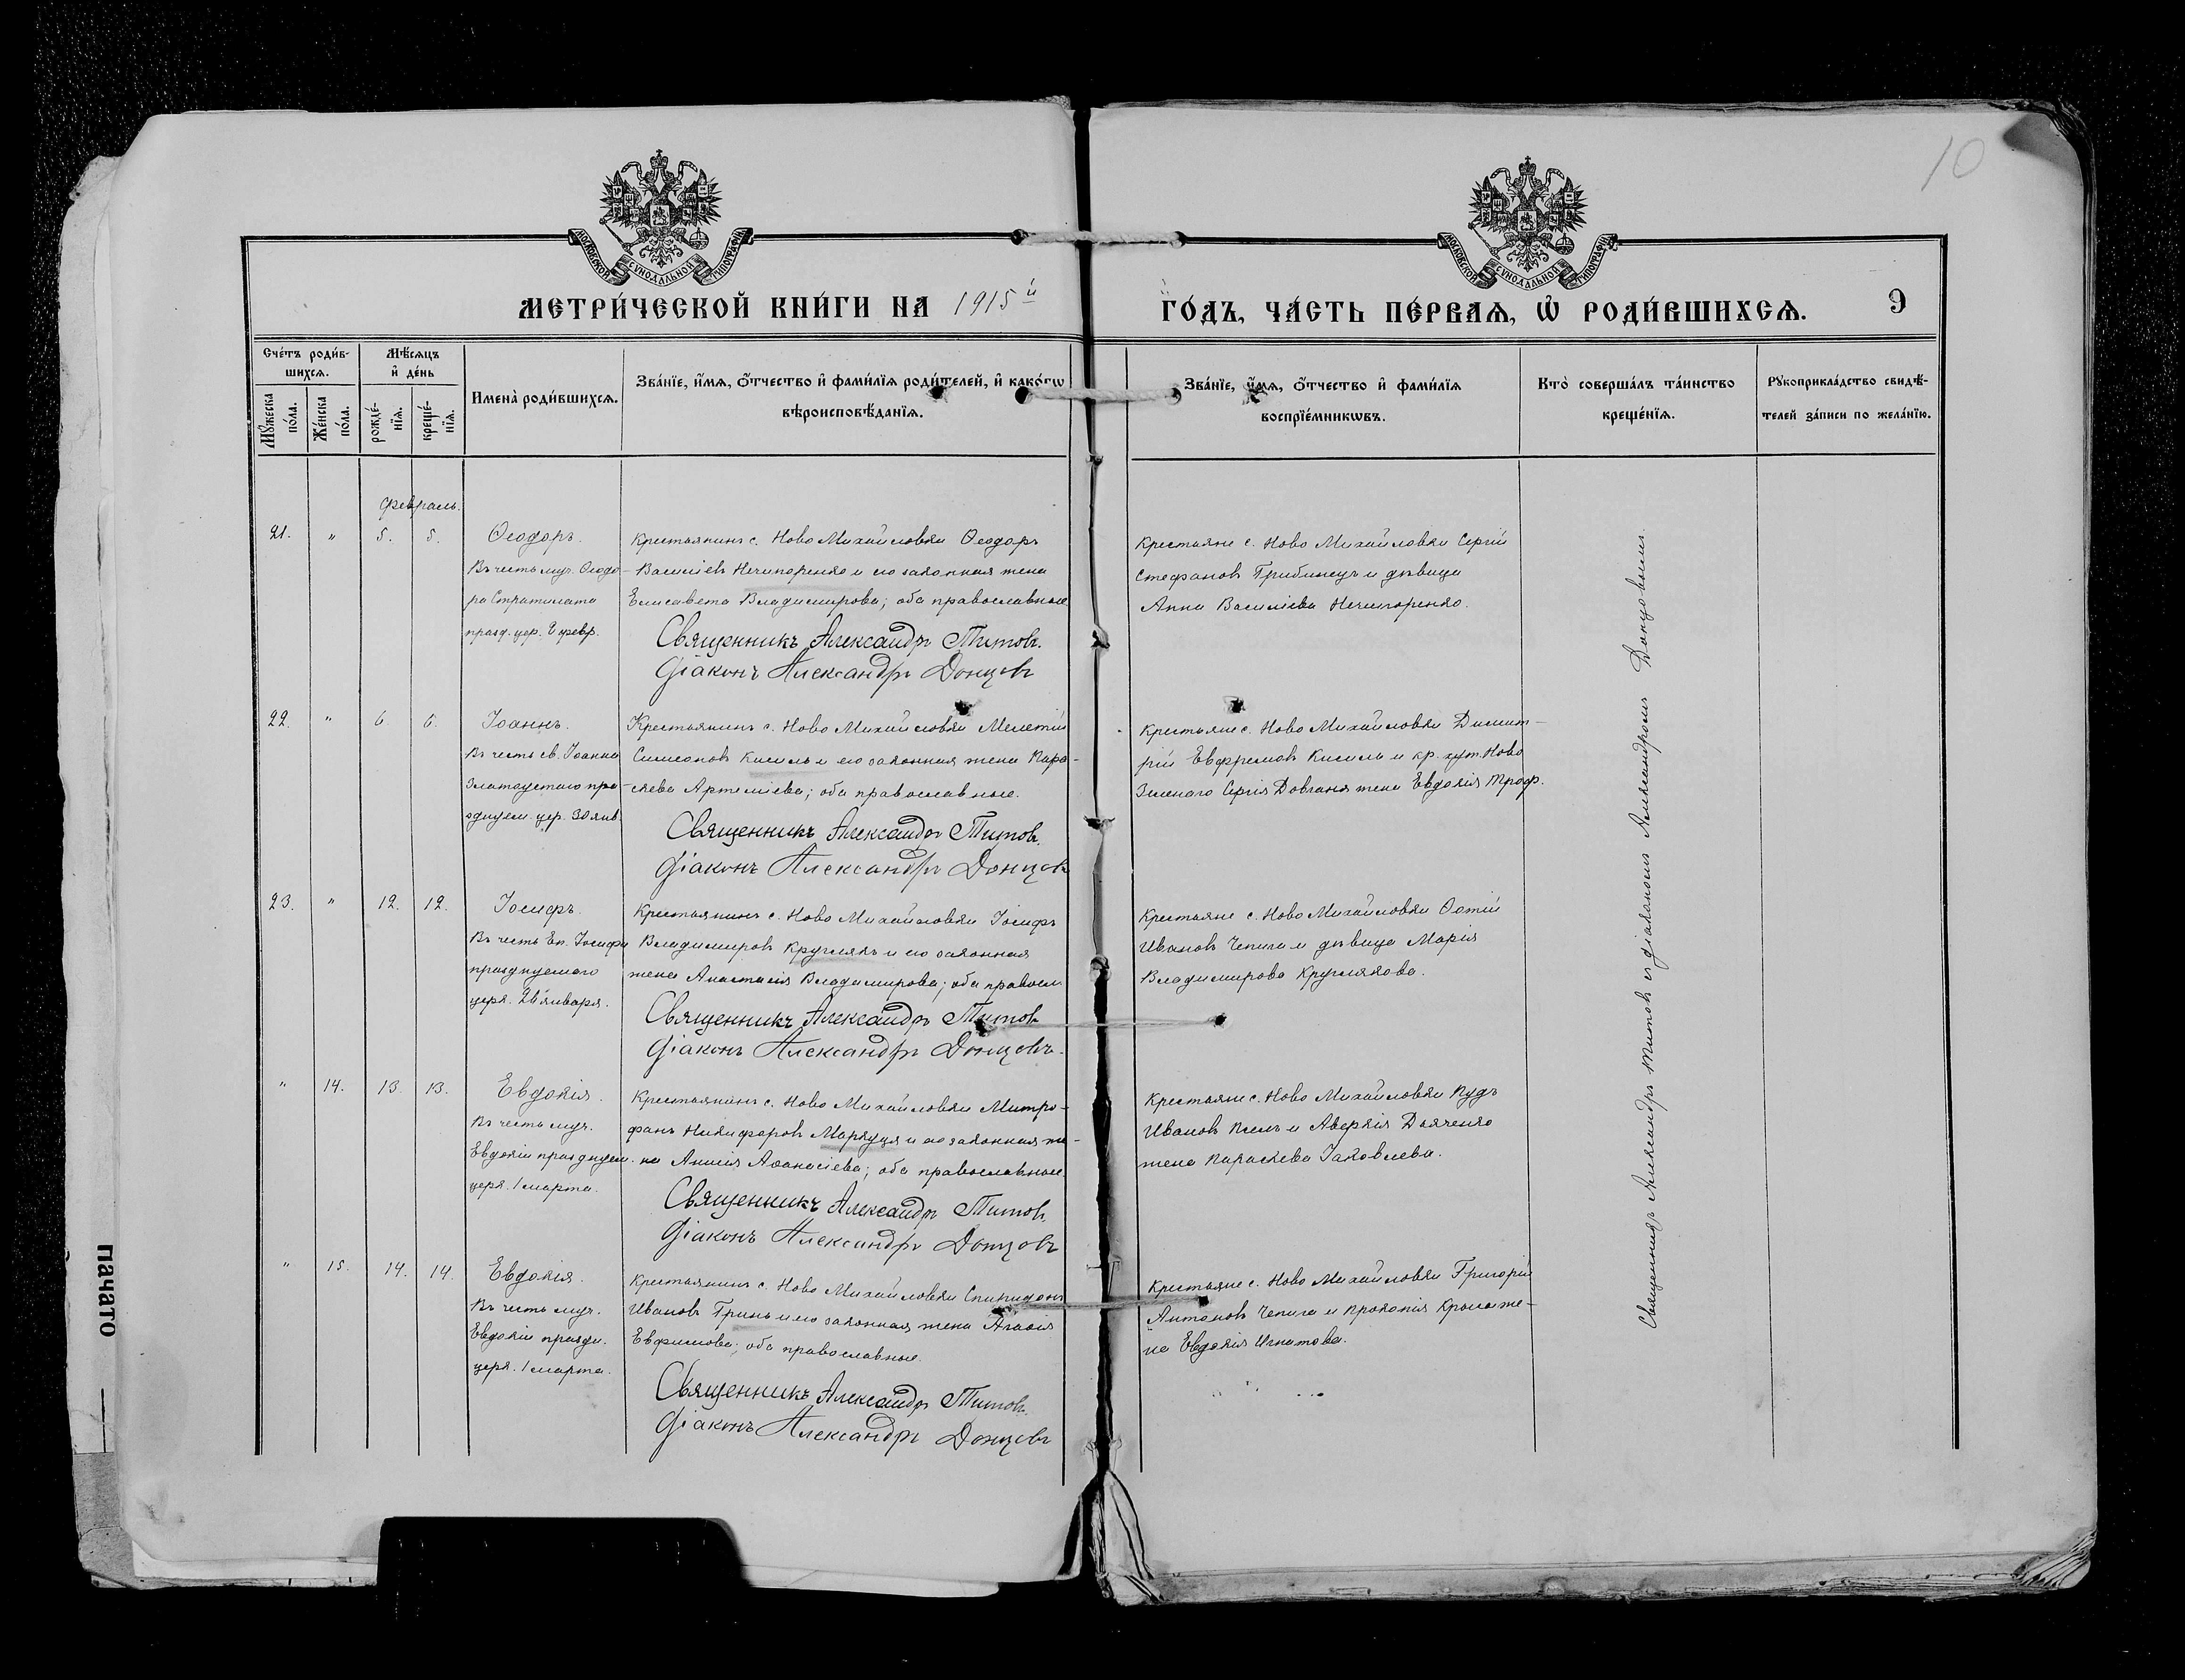 10
МОСКОВСКОЙ СѴНОДАЛЬНОЙ ТИПОГРАФІИ
МОСКОВСКОЙ СѴНОДАЛЬНОЙ ТИПОГРАФІИ
МЕТРИ́ЧЕСКОЙ КНИ́ГИ НА 1915й ГО́ДЪ, ЧА́СТЬ ПЕ́РВАѦ, Ѡ҆ РОДИ́ВШИХСѦ. 9
Сче́тъ роди́в-
шихсѧ.
Мꙋ́жеска по́ла.
Же́нска по́ла.
Мѣ́сѧцъ
и҆ де́нь
рожде́-
нїѧ.
креще́-
нїѧ.
И҆мена̀ роди́вшихсѧ.
Зва́нїе, и҆́мѧ, ѻ҆́тчество и҆ фами́лїѧ роди́телей, и҆ како́гѡ
вѣроисповѣ́данїѧ.
Зва́нїе, и҆́мѧ, ѻ҆́тчество и҆ фами́лїѧ
воспрїе́мникѡвъ.
Кто̀ соверша́лъ та́инство
креще́нїѧ.
Рꙋкоприкла́дство свидѣ́-
телей за́писи по жела́нїю.
Февраль.
21. " 5. 5. Ѳеодоръ.
Въ честь муч. Ѳеодо-
ра Стратилата
празд. цер. 8 февр.
Крестьянинъ с. Ново Михайловки Ѳеодоръ
Василіевъ Нечипоренко и его законная жена
Елисавета Владимирова; оба православные.
Священникъ Александръ Титовъ.
Діаконъ Александръ Донцовъ
Крестьяне с. Ново Михайловки Сергій
Стефановъ Грибинецъ и дѣвица
Анна Василіева Нечипоренко.
22. " 6. 6. Іоаннъ.
Въ честь св. Іоанна
Златоустаго пра-
здуем. цер. 30 янв.
Крестьянинъ с. Ново Михайловки Мелетій
Симеоновъ Кисиль и его законная жена Пара-
скева Артеміева; оба православные.
Священникъ Александръ Титовъ.
Діаконъ Александръ Донцовъ
Крестьяне с. Ново Михайловки Димит-
рій Евфремовъ Кисиль и кр. хут. Ново
Зиленаго Сергія Довганя жена Евдокія Троф.
23. " 12. 12. Іосифъ.
Въ честь Еп. Іосифа
празднуемаго
церк. 26 января.
Крестьянинъ с. Ново Михайловки Іосифъ
Владимировъ Круглякъ и его законная
жена Анастасія Владимирова; оба правосл.
Священникъ Александръ Титовъ
Діаконъ Александръ Донцовъ.
Крестьяне с. Ново Михайловки Фотій
Ивановъ Чепига и дѣвица Марія
Владимирова Круглякова.
" 14. 13. 13. Евдокія.
Въ честь муч.
Евдокіи празднуем.
церк. 1 марта.
Крестьянинъ с. Ново Михайловки Митро-
фанъ Никифоровъ Маркуця и его законная же-
на Анисія Аѳанасіева; оба православные.
Священникъ Александръ Титовъ.
Діаконъ Александръ Донцовъ
Крестьяне с. Ново Михайловки Пудъ
Ивановъ и Аверкія Дьяченко
жена Параскева Іаковлева.
" 15. 14. 14. Евдокія.
Въ честь муч.
Евдокіи праздн.
церк. 1 марта.
Крестьянинъ с. Ново Михайловки Спиридонъ
Ивановъ Гринь и его законная жена Агаѳія
Евфимова; оба православные.
Священникъ Александръ Титовъ.
Діаконъ Александръ Донцовъ
Крестьяне с. Ново Михайловки Григорій
Антоновъ Чепига и Прокопія же-
на Евдокія Игнатова.
Священникъ Александръ Титовъ съ діакономъ Александромъ Донцовымъ.
начато